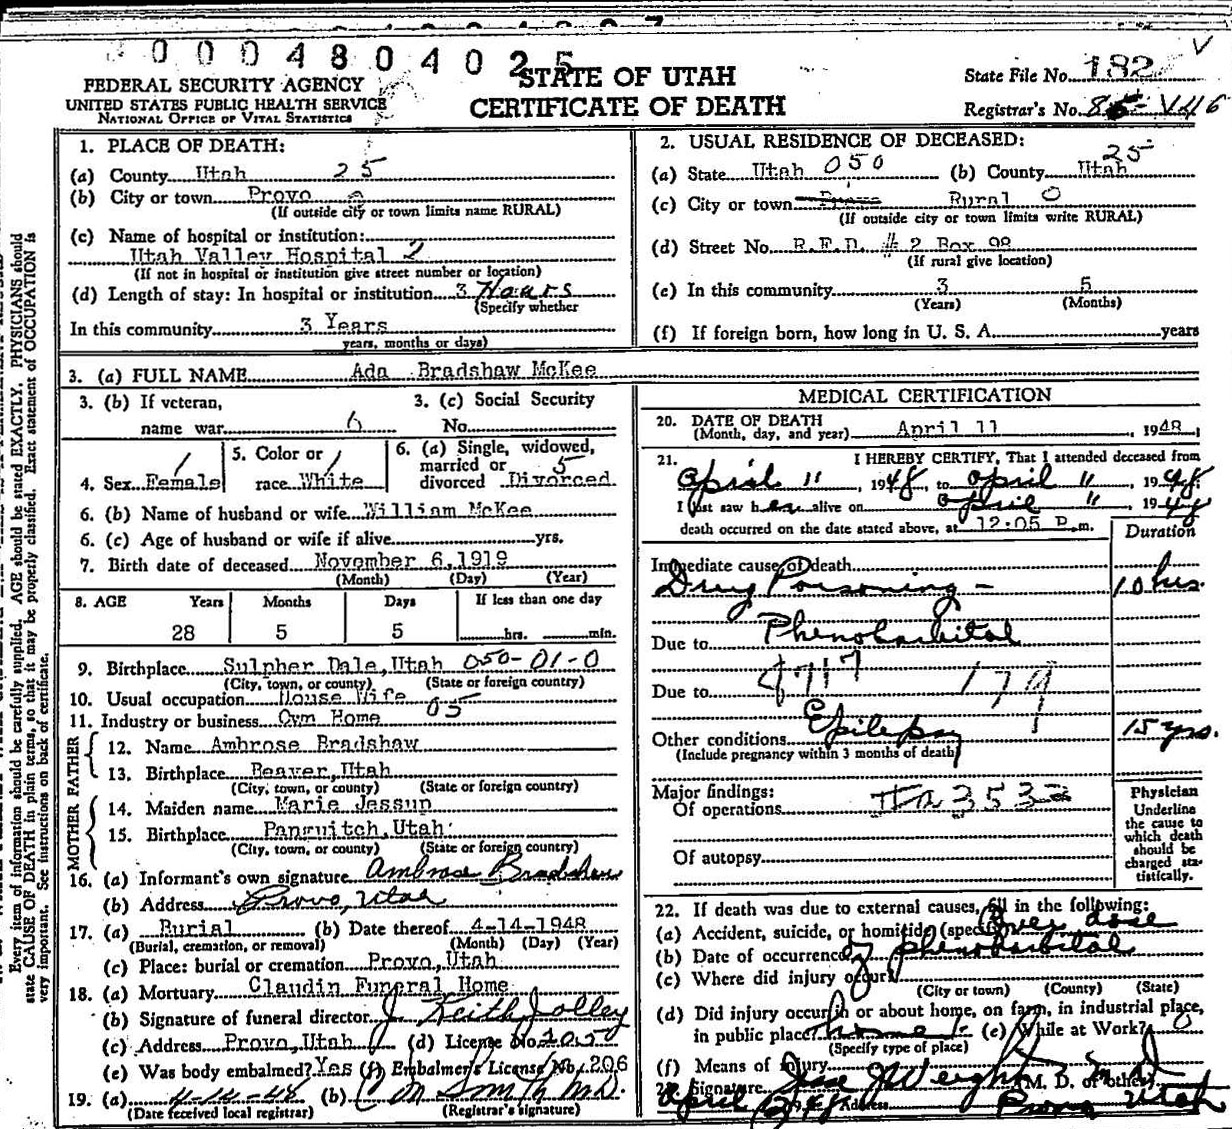 0 0 0 4 8 0 4 0 2 5
FEDERAL SECURITY AGENCY
UNITED STATES PUBLIC HEALTH SERVICE
NATIONAL OFFICE OF VITAL STATISTICS
STATE OF UTAH
CERTIFICATE OF DEATH
State File No. 182
Registrar's No.
Every item of information should be carefully supplied. AGE should be stated EXACTLY. PHYSICIANS should
state CAUSE OF DEATH in plain terms, so that it may be properly classified. Exact statement of OCCUPATION is
very important. See instructions on back of certificate.
1. PLACE OF DEATH:
(a) County Utah 25
(b) City or town Provo
(If outside city or town limits name RURAL)
(c) Name of hospital or institution:
Utah Valley Hospital 2
(If not in hospital or institution give street number or location)
(d) Length of stay: In hospital or institution 3 Hours
(Specify whether
In this community 3 Years
years, months or days)
2. USUAL RESIDENCE OF DECEASED:
(a) State Utah 050 (b) County Utah 25
(c) City or town Provo Rural 0
(If outside city or town limits write RURAL)
(d) Street No. R.F.D. # 2 Box 98
(If rural give location)
(e) In this community 3 5
(Years) (Months)
(f) If foreign born, how long in U. S. A. years
3. (a) FULL NAME Ada Bradshaw McKee
3. (b) If veteran,
name war 6
3. (c) Social Security
No.
4. Sex Female 1
5. Color or
race White 1
6. (a) Single, widowed,
married or
divorced Divorced 5
6. (b) Name of husband or wife William McKee
6. (c) Age of husband or wife if alive yrs.
7. Birth date of deceased November 6,1919
(Month) (Day) (Year)
8. AGE Years Months Days If less than one day
28 5 5 hrs. min.
9. Birthplace Sulpher Dale,Utah 050-01-0
(City, town, or county) (State or foreign country)
10. Usual occupation House Wife
05
11. Industry or business Own Home
FATHER
12. Name Ambrose Bradshaw
13. Birthplace Beaver,Utah
(City, town, or county) (State or foreign country)
MOTHER
14. Maiden name Marie Jessup
15. Birthplace Panguitch,Utah
(City, town, or county) (State or foreign country)
16. (a) Informant's own signature Ambrose Bradshaw
(b) Address Provo, Utah
17. (a) Burial (b) Date thereof 4-14-1948
(Burial, cremation, or removal) (Month) (Day) (Year)
(c) Place: burial or cremation Provo,Utah
18. (a) Mortuary Claudin Funeral Home
(b) Signature of funeral director J. Keith Jolley
(c) Address Provo,Utah (d) License No. 1050
(e) Was body embalmed? Yes (f) Embalmer's License No. 206
19. (a) 4-14-48 (b) C M Smith M.D.
(Date received local registrar) (Registrar's signature)
MEDICAL CERTIFICATION
20. DATE OF DEATH
(Month, day, and year) April 11, 1948
21. I HEREBY CERTIFY, That I attended deceased from
April 11, 1948, to April 11, 1948
I last saw her alive on April 11, 1948
death occurred on the date stated above, at 12:05 P.m.
Duration
Immediate cause of death
Drug Poisoning - 10 hrs.
Due to Phenobarbital
Due to 179
Other conditions Epilepsy 15 yrs.
(Include pregnancy within 3 months of death)
Major findings:
Of operations
Of autopsy
Physician
Underline
the cause to
which death
should be
charged sta-
tistically.
22. If death was due to external causes, fill in the following:
(a) Accident, suicide, or homicide (specify) Over dose
(b) Date of occurrence of phenobarbital
(c) Where did injury occur?
(City or town) (County) (State)
(d) Did injury occur in or about home, on farm, in industrial place,
in public place? home (e) While at Work? 0
(Specify type of place)
(f) Means of injury
23. Signature Jesse J Weight M D (M. D. or other)
April Address Provo Utah